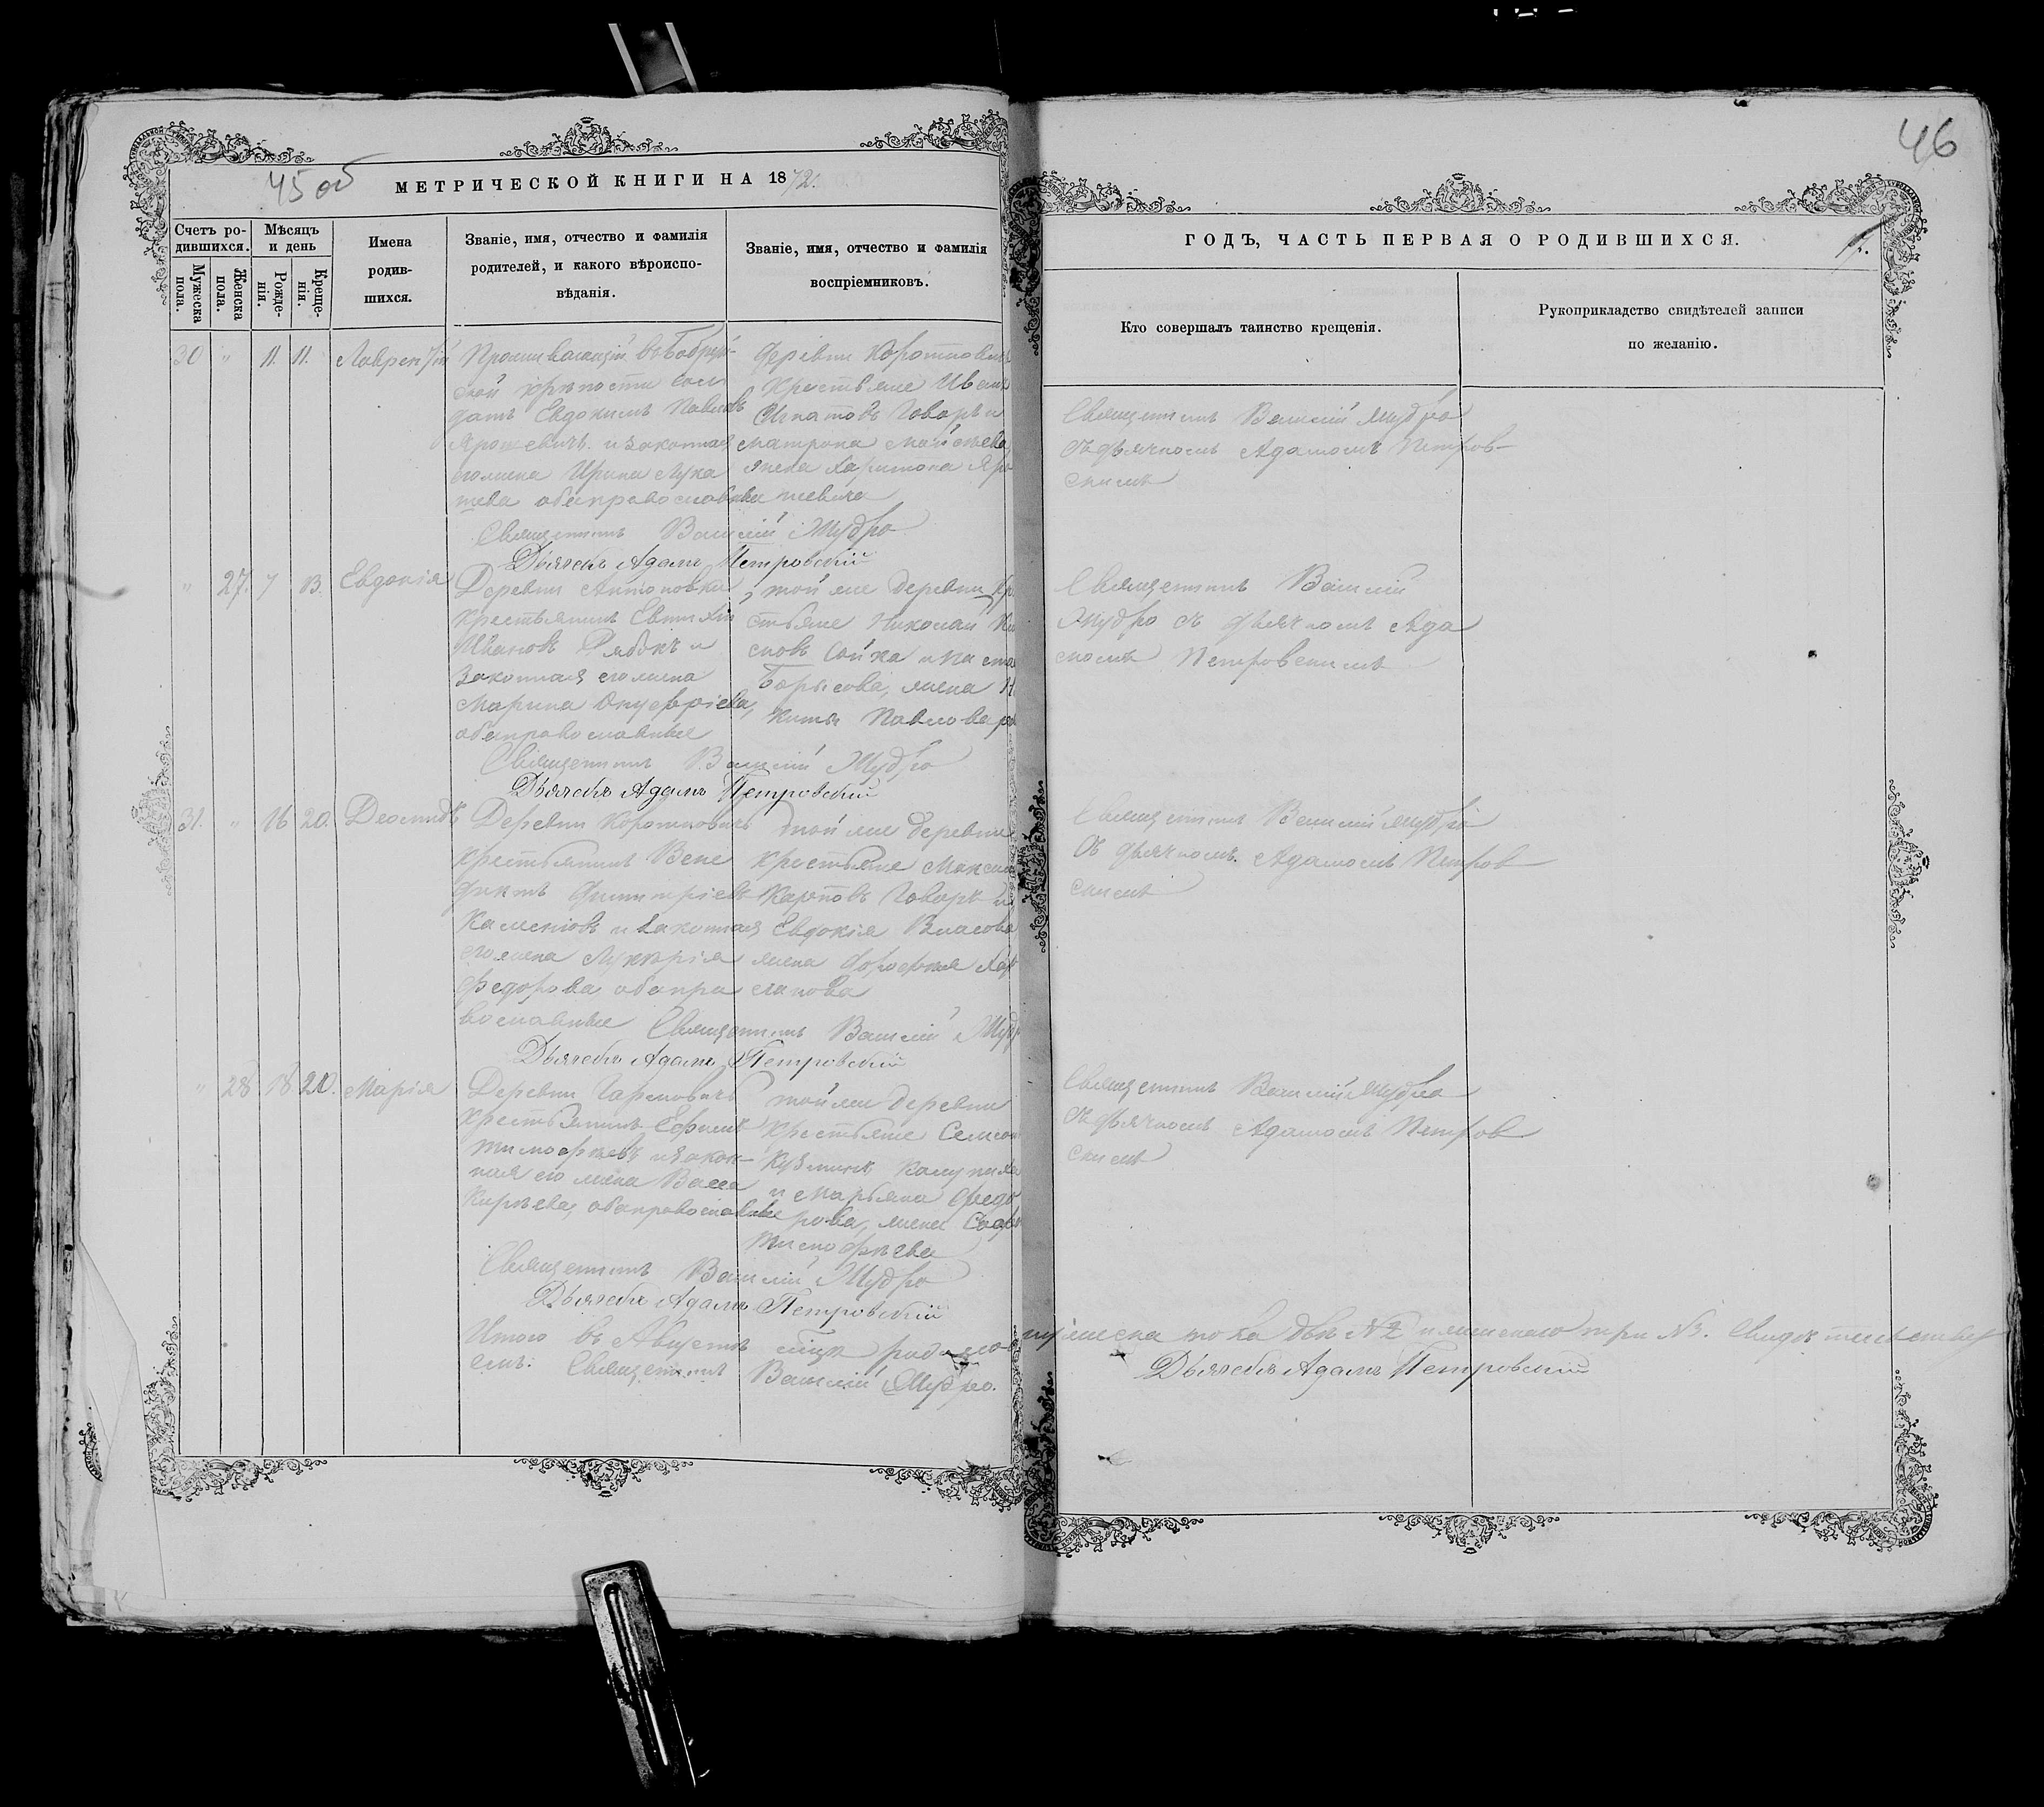 45 об
МЕТРИЧЕСКОЙ КНИГИ НА 1872.
Счетъ ро-
дившихся.
Мужеска
пола.
Женска
пола.
Мѣсяцъ
и день
Рожде-
нія.
Креще-
нія.
Имена
родив-
шихся.
Званіе, имя, отчество и фамилія
родителей, и какого вѣроиспо-
вѣданія.
Званіе, имя, отчество и фамилія
воспріемниковъ.
30 " 11. 11. Лаврентій
Проживающій въ Бобруй-
ской крѣпости сол
датъ Евдокимъ Павловъ
Ярошевичъ и законная
его жена Ирина Лука
шева оба православные
Деревни Коротковичъ
Крестьяне Иванъ
Игнатовъ Говоръ и
Матрона Моисеева
жена Харитона Яро
шевича
Священникъ Василій Мудро
Дьячекъ Адамъ Петровскій
" 27. 7 13. Евдокія
Деревни Антоновки
Крестьянинъ Евтихій
Ивановъ Рябокъ и
законная его жена
Марина Онуфріева,
оба православные
той же деревни Кре
стьяне Николай
Сайка и
Борисова, жена Ни
киты Павлова
Священникъ Василій Мудро
Дьячекъ Адамъ Петровскій
31. " 16 20. Деомидъ
Деревни Коротковичъ
Крестьянинъ Вене
диктъ Димитріевъ
и законная
его жена Луккерія
Федорова оба пра
вославные
той же деревни
Крестьяне Максимъ
Карповъ Говоръ и
Евдокія Власова
жена Дорофея
Священникъ Василій Мудро
Дьячекъ Адамъ Петровскій
" 28 18 20. Марія
Деревни
Крестьянинъ Ефимъ
Тимофеевъ и закон-
ная его жена Васса
Кирѣева, оба православные
той же деревни
Крестьяне Семенъ
Кузминъ
и Марьяна Федо
рова, жена
Тимофѣева
Священникъ Василій Мудро
Дьячекъ Адамъ Петровскій
Итого въ Августѣ м҃цѣ
Священникъ Василій Мудро.
46
ГОДЪ, ЧАСТЬ ПЕРВАЯ О РОДИВШИХСЯ.
Кто совершалъ таинство крещенія.
Рукоприкладство свидѣтелей записи
по желанію.
Священникъ Василій Мудро
съ дьячкомъ Адамомъ Петров-
скимъ
Священникъ Василій
Мудро съ дьячкомъ Ада
момъ Петровскимъ
Священникъ Василій Мудро
съ дьячкомъ Адамомъ Петров
скимъ
Священникъ Василій Мудро
съ дьячкомъ Адамомъ Петров
скимъ
пола два №2 и женскаго три №3.
Дьячекъ Адамъ Петровскій